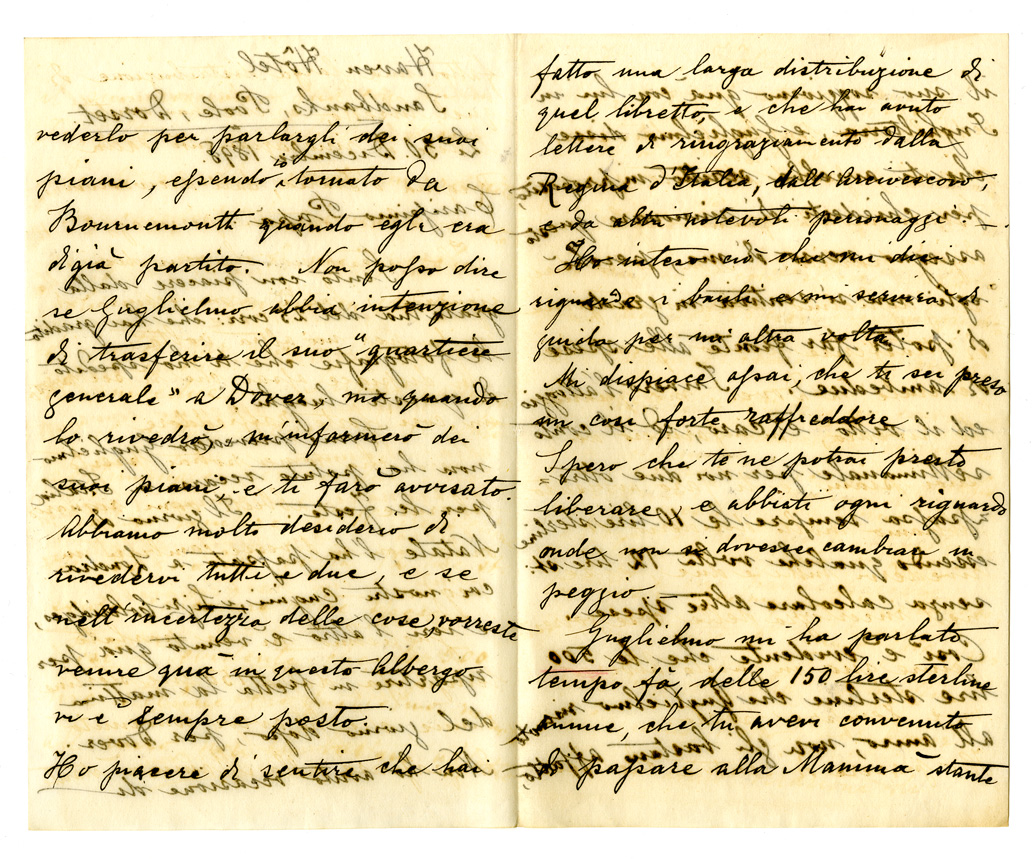 vederlo per parlargli dei suoi
piani, essendo io tornato da
Bournemouth quando egli era
digià partito. Non posso dire
se Guglielmo abbia intenzione
di trasferire il suo "quartiere
generale" a Dover, ma quando
lo rivedrò m'informerò dei
suoi piani e ti farò avvisato.
Abbiamo molto desiderio di
rivedervi tutti e due, e se
nell'incertezza delle cose vorreste
venire quà in questo Albergo
vi è sempre posto.
Ho piacere di sentire che hai
fatto una larga distribuzione di
quel libretto, e che hai avuto
lettere di ringraziamento dalla
Regina d'Italia, dall'Arcivescovo,
e da altri notevoli personaggi.
Ho inteso ciò che mi dici
riguardo i bauli e mi servirà di
guida per un'altra volta.
Mi dispiace assai, che ti sei preso
un così forte raffreddore
Spero che te ne potrai presto
liberare, e abbiati ogni riguardo
onde non si dovesse cambiare in
peggio.
Guglielmo mi ha parlato
tempo fà, delle 150 lire sterline
annue, che tu avevi convenuto
di passare alla Mamma stante